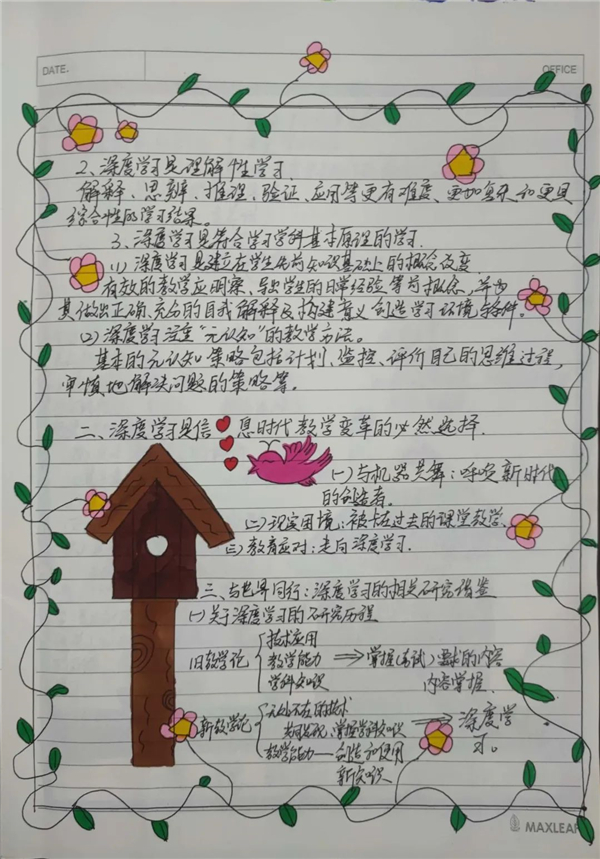 DATE.
OFFICE
2、深度学习是理解性学习.
解释、思辨、推理、验证、应用等更有难度、更加复杂和更具
综合性的学习结果。
3、深度学习是符合学习学科基本原理的学习.
(1) 深度学习是建立在学生先前知识基础上的概念改变
有效的教学应明察、导出学生的日常经验等前概念,并为
其做出正确、充分的自我解释及构建意义创造学习环境与条件。
(2)深度学习注重“元认知”的教学方法。
基本的元认知策略包括计划、监控、评价自己的思维过程,
审慎地解决问题的策略等。
二、深度学习是信息时代教学变革的必然选择.
(一)与机器共舞:呼唤新时代
的创造者。
(二)现实困境:被卡在过去的课堂教学.
(三)教育应对:走向深度学习.
三、与世界同行:深度学习的相关研究借鉴
(一)关于深度学习的研究历程
旧教学论
技术应用
教学能力
学科知识
⇒掌握(考试)要求的内容
内容掌握.
新教学论
无处不在的技术
共同发现、掌握学科知识
教学能力—创造和使用
新知识
⇒深度学
习。
MAXLEAF